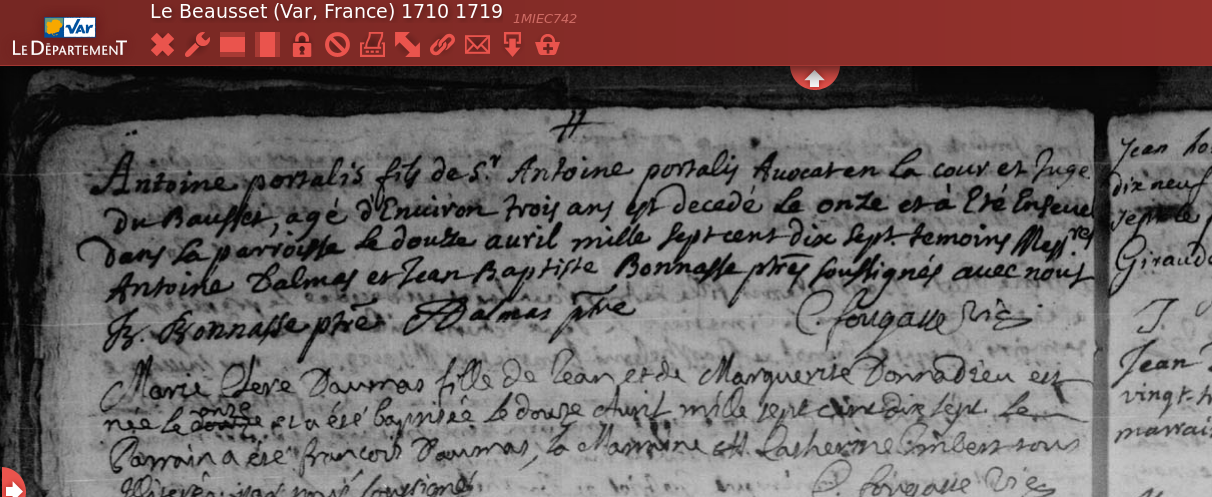 Le Beausset (Var, France) 1710 1719 1MIEC742
VAR
LE DÉPARTEMENT
Antoine portalis fils de S.r Antoine portalis Auocat en la cour et Juge
du Bausset, agé d'Enuiron trois ans est decedé le onze et à Eté Enseue
dans la parroisse le douze auril mille sept cent dix sept. temoins Mess.res
Antoine Dalmas et Jean Baptiste Bonnasse ptres soussignés auec nous
Bonnasse ptre Dalmas ptre C. fougasse Vic
Marie Daumas fille de Jean et de Marguerite Donnadieu est
née le onze et a été baptisée le douze Auril mille sept cent dix sept. Le
Parrain a été françois Daumas, la Marraine Catherine Imbert tous
C. fougasse Vic
Jean
dix neuf
sept
Giraud
J.
Jean
vingt
marrai